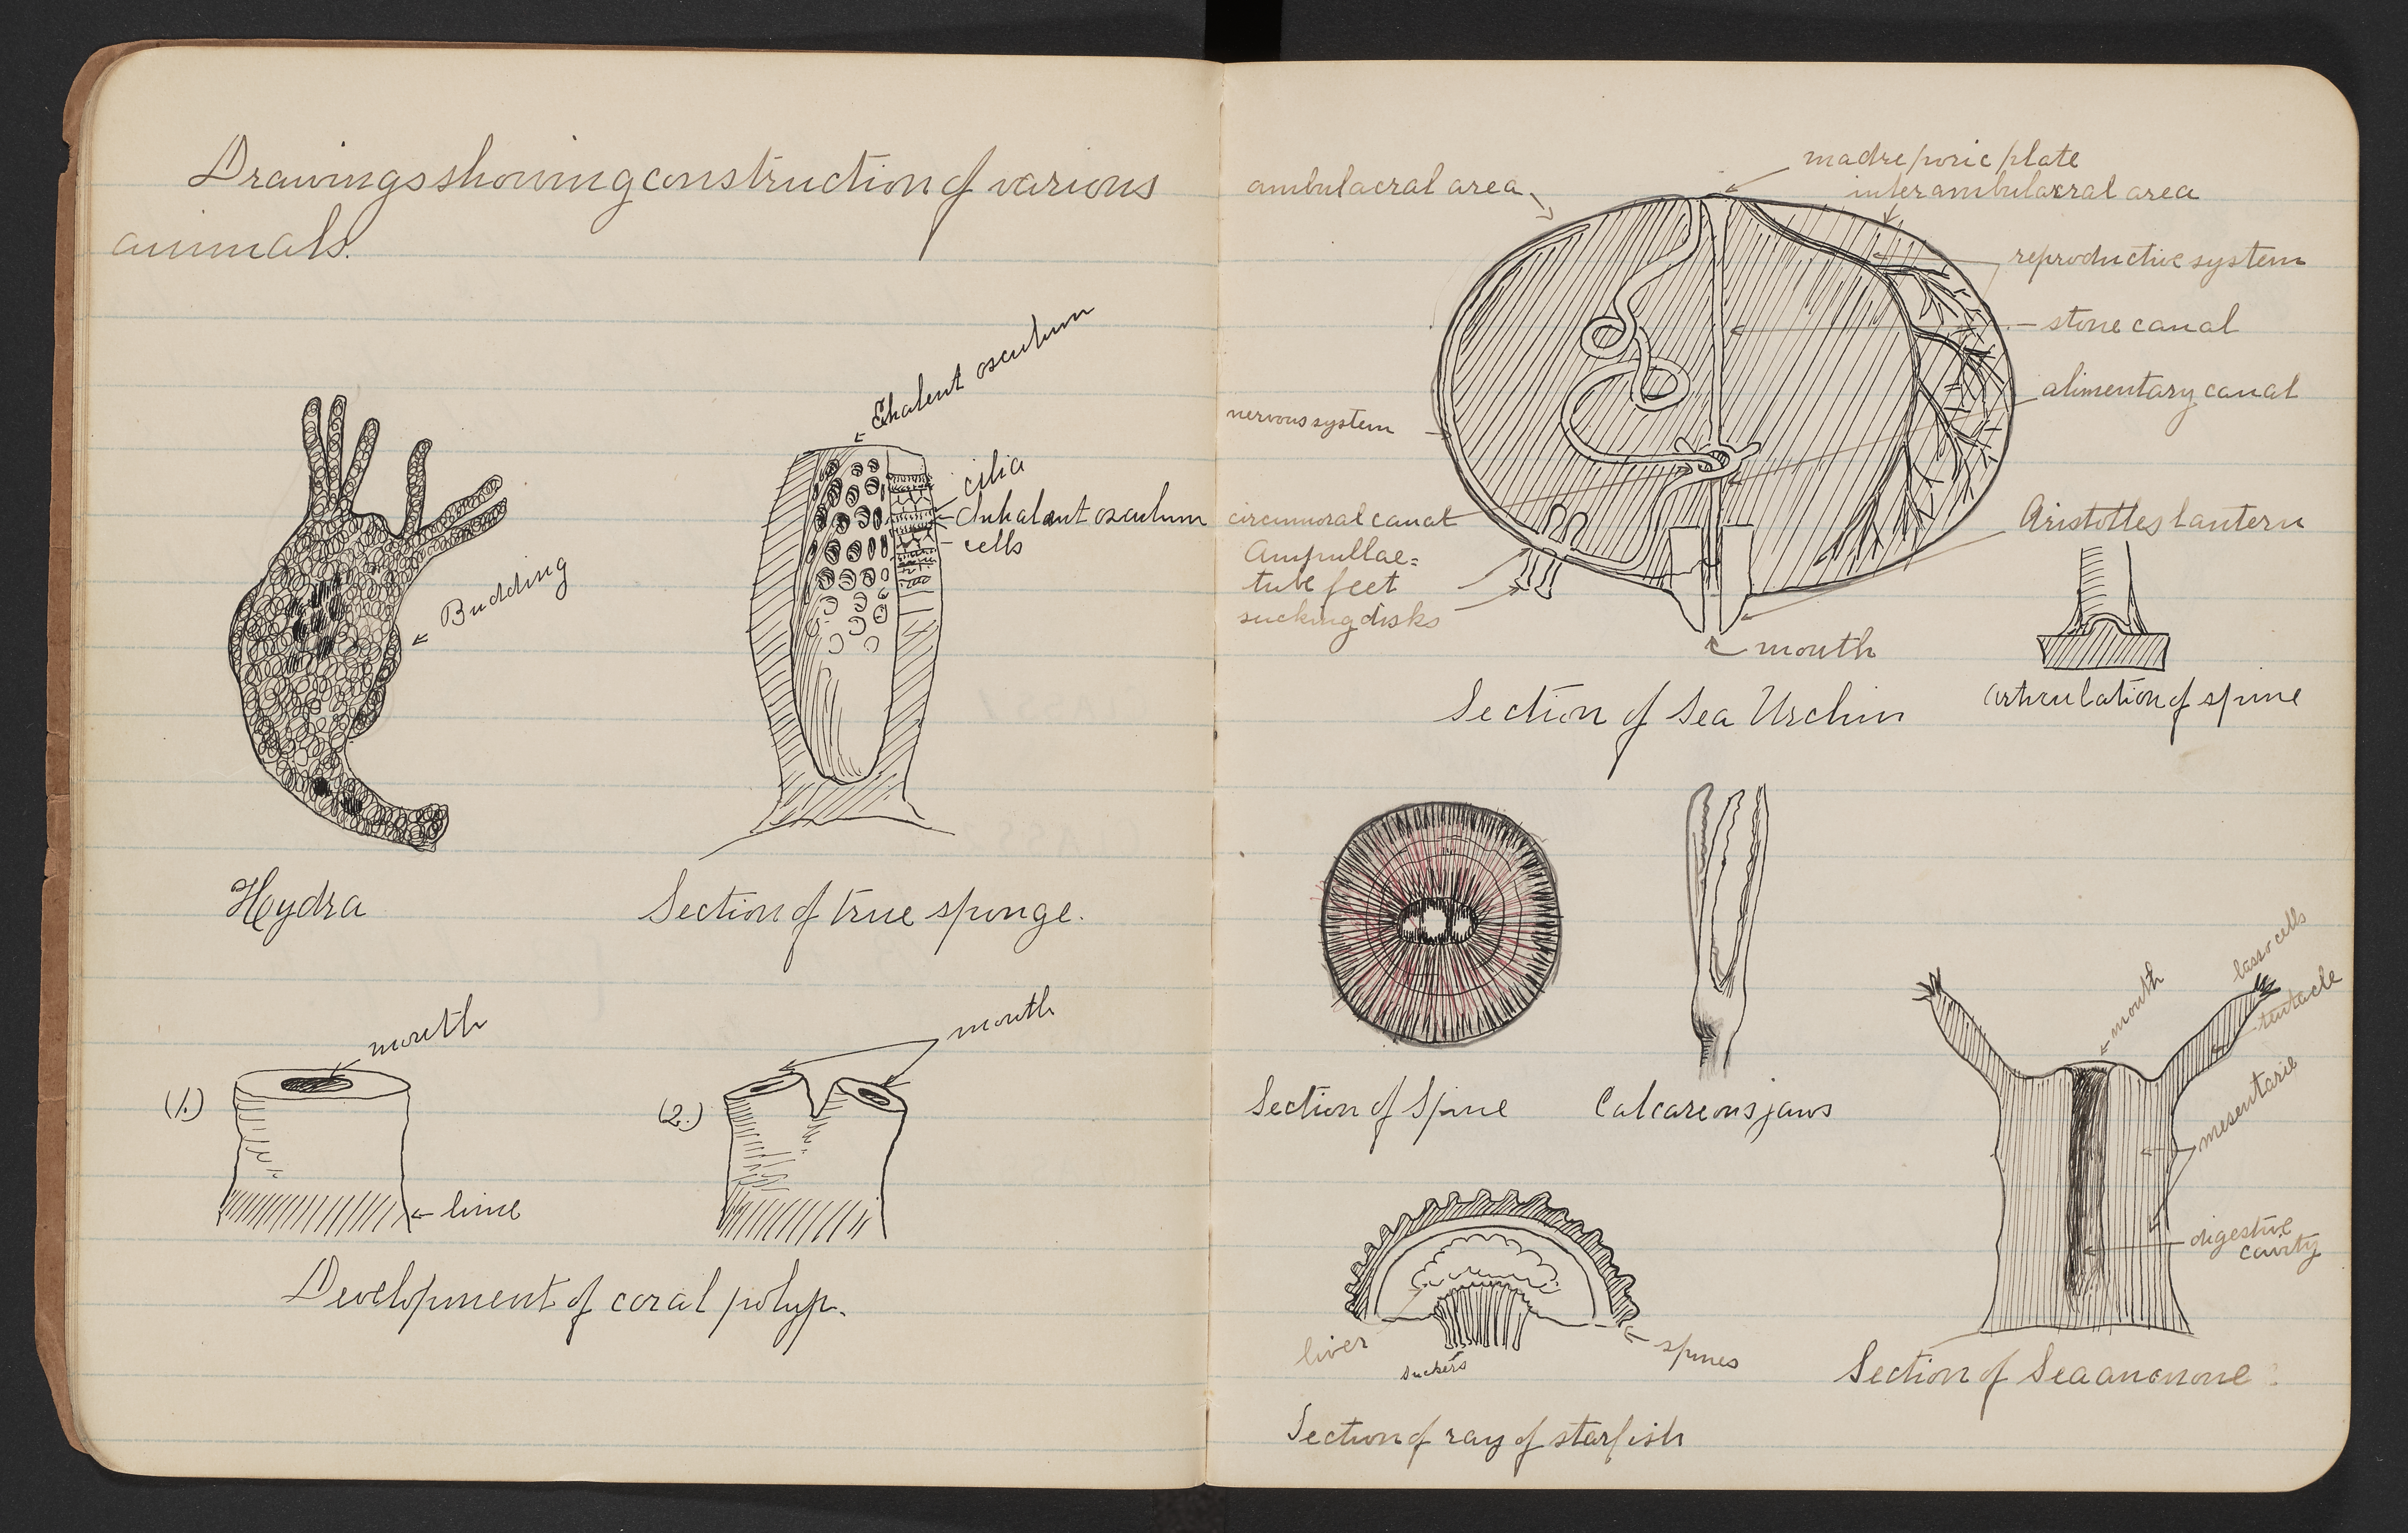 Drawings showing construction of various
animals.
Exhalent osculum
cilia
Inhalent osculum
cells
Budding
Hydra
Section of true sponge.
mouth
mouth
(1.)
(2.)
lime
Development of coral polyp.
madreporic plate
ambulacral area
interambulacral area
reproductive system
stone canal
alimentary canal
nervous system
circumoral canal
Aristotles lantern
Ampullae=
tube feet
sucking disks
mouth
Section of Sea Urchin
Articulation of spine
Section of Spine
Calcareous jaws
lasso cells
mouth
tentacle
mesentarie
digestive
cavity
liver
suckers
spines
Section of Sea anonone
Section of ray of starfish